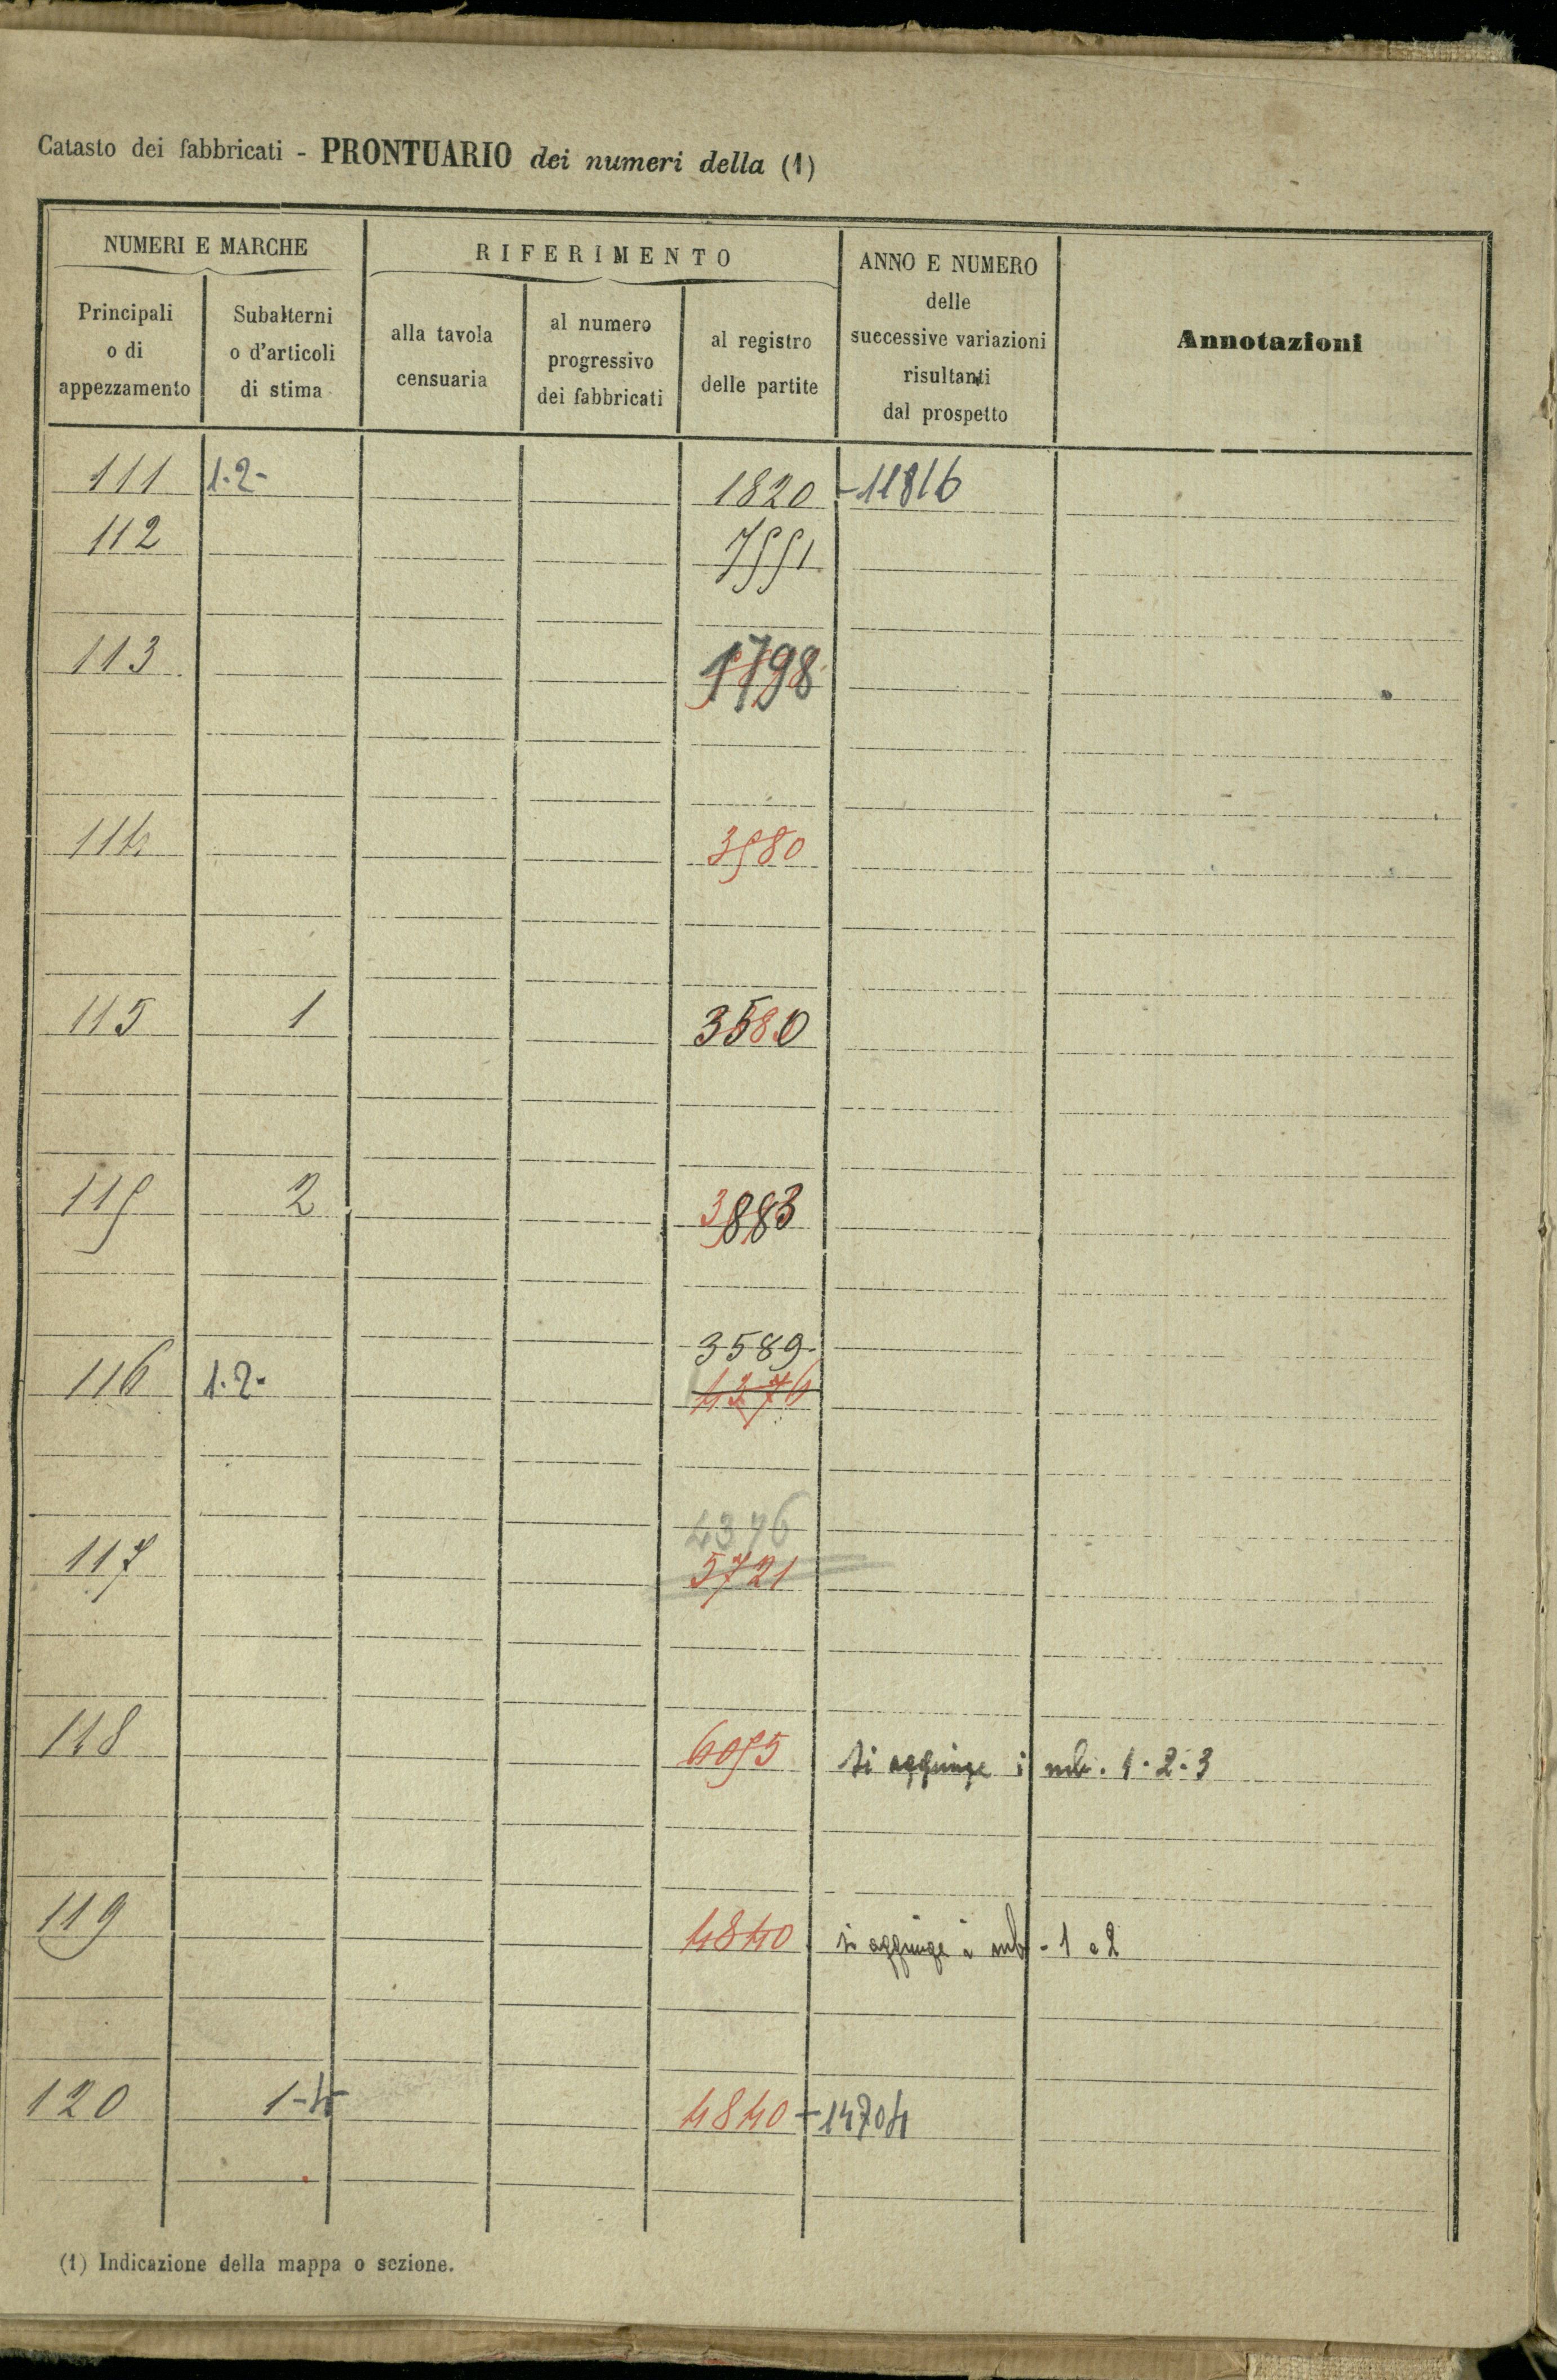 Catasto dei fabbricati - PRONTUARIO dei numeri della (1)
NUMERI E MARCHE
RIFERIMENTO
ANNO E NUMERO
delle
successive variazioni
risultanti
dal prospetto
Annotazioni
Principali
o di
appezzamento
Subalterni
o d'articoli
di stima
alla tavola
censuaria
al numero
progressivo
dei fabbricati
al registro
delle partite
111 1.2- 1820 -11816
112 7551
113 1798
114 3580
115 1 3580
115 2 3883
3589
116 1.2- 4376
4376
117 5721
118 6055 si aggiunge i sub. 1-2-3
119 4840 si aggiunge i sub - 1 e 2
120 1-4 4840 - 14704
(1) Indicazione della mappa o sezione.